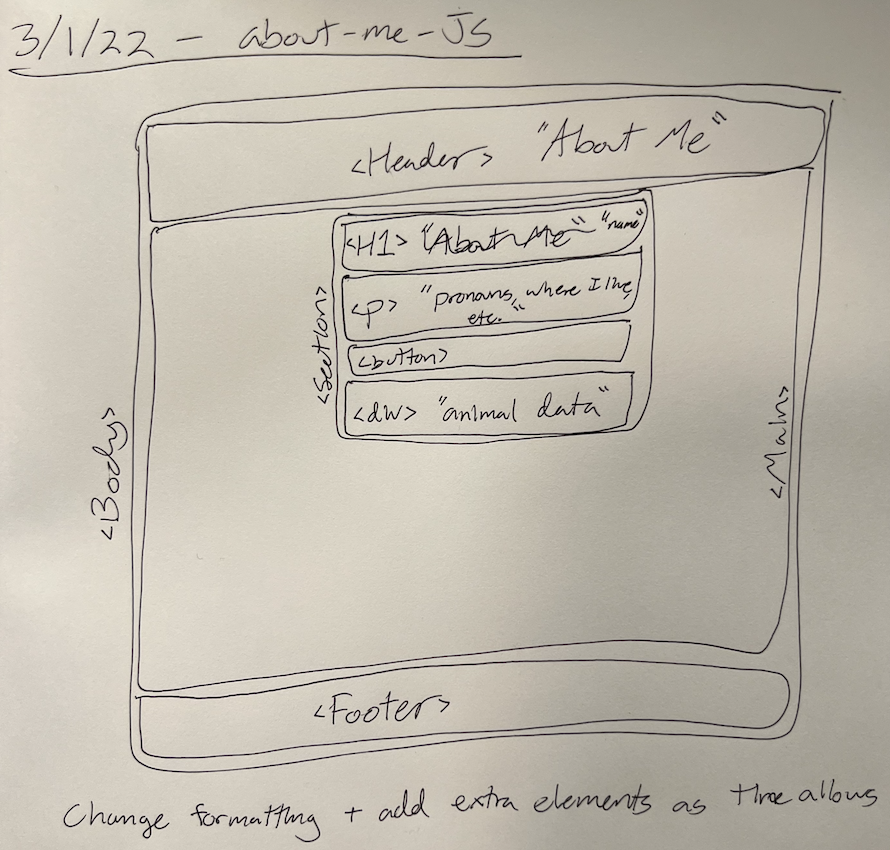 3/1/22 - about-me-JS
<Header> "About Me"
<H1> "About Me" "name"
<p> "pronouns, where I live,
etc."
<button>
<div> "animal data"
<Section>
<Body>
<Main>
<Footer>
Change formatting + add extra elements as time allows